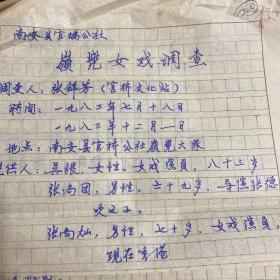 南安县官桥公社
岭兜女戏调查
调查人：张锦芳（官桥文化站）
时间：一九八三年七月十八日
一九八三年十二月一日
地点：南安县官桥公社岭兜大队
提供人：吴银，女性，女戏演员，八十三岁
张尚团，男性，六十九岁，导演张德
次之子，
张尚灿，男性，七十岁，女戏演员，
现在香港